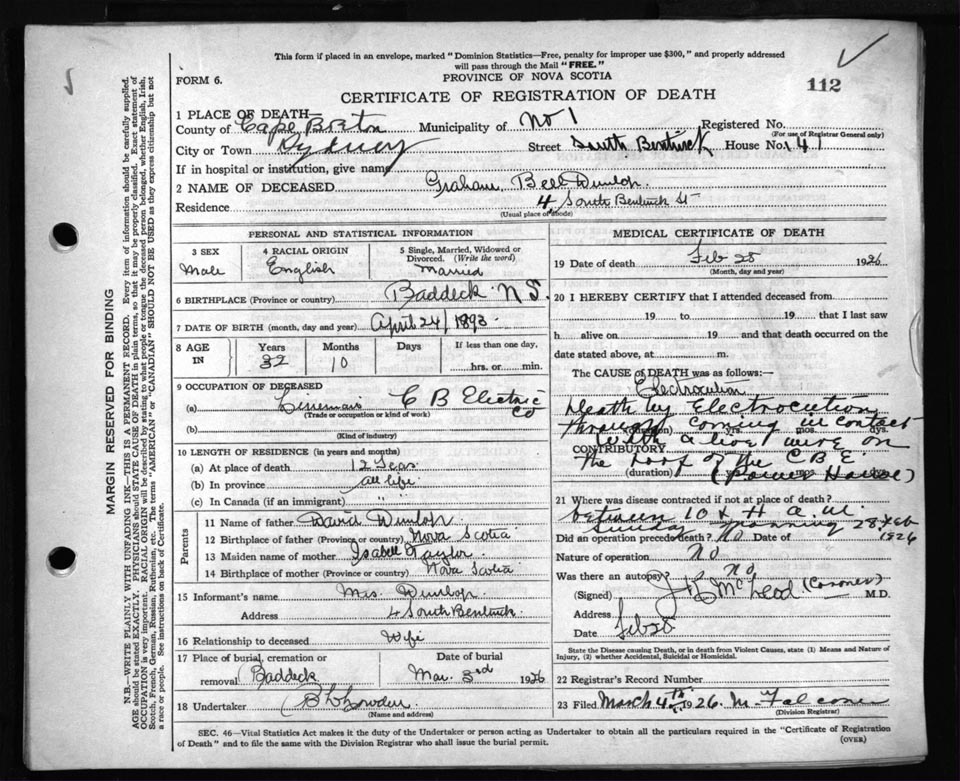 This form if placed in an envelope, marked "Dominion Statistics—Free, penalty for improper use $300," and properly addressed
will pass through the Mail "FREE."
FORM 6.
PROVINCE OF NOVA SCOTIA
112
CERTIFICATE OF REGISTRATION OF DEATH
1 PLACE OF DEATH
County of Cape Breton Municipality of No 1 Registered No.
(For use of Registrar General only)
City or Town Sydney Street South Bentinck House No. 41
If in hospital or institution, give name
2 NAME OF DECEASED Graham Bell Dunlop.
Residence 4 South Bentinck St
(Usual place of abode)
PERSONAL AND STATISTICAL INFORMATION
3 SEX 4 RACIAL ORIGIN 5 Single, Married, Widowed or Divorced. (Write the word)
Male English Married
6 BIRTHPLACE (Province or country) Baddeck N S.
7 DATE OF BIRTH (month, day and year) April 24/1893
8 AGE IN Years Months Days If less than one day,
32 10 hrs. or min.
9 OCCUPATION OF DECEASED
(a) Lineman's C B Electric Co
(Trade or occupation or kind of work)
(b)
(Kind of industry)
10 LENGTH OF RESIDENCE (in years and months)
(a) At place of death 12 Years
(b) In province all life
(c) In Canada (if an immigrant) " "
Parents
11 Name of father David Dunlop.
12 Birthplace of father (Province or country) Nova Scotia
13 Maiden name of mother Isabell Taylor
14 Birthplace of mother (Province or country) Nova Scotia
15 Informant's name Mrs. Dunlop.
Address 4 South Bentinck.
16 Relationship to deceased Wife
17 Place of burial, cremation or removal Baddeck Date of burial Mar. 3rd 1926
18 Undertaker
(Name and address)
MEDICAL CERTIFICATE OF DEATH
19 Date of death Feb 28 1926
(Month, day and year)
20 I HEREBY CERTIFY that I attended deceased from
19 to 19 that I last saw
h alive on 19 and that death occurred on the
date stated above, at m.
The CAUSE OF DEATH was as follows:
Electrocution
Death by Electrocution
through coming in contact
(duration) yrs. mos. dys.
with a live wire on
CONTRIBUTORY
the roof of the C.B.E.
(duration) (Power House)
21 Where was disease contracted if not at place of death?
between 10 & 11 a.m.
Sunday Morning 28 Feb 1926
Did an operation precede death? No Date of
Nature of operation No
Was there an autopsy? No
(Signed) McLeod (Coroner) M.D.
Address
Date Feb 28
State the Disease causing Death, or in death from Violent Causes, state (1) Means and Nature of
Injury, (2) whether Accidental, Suicidal or Homicidal.
22 Registrar's Record Number
23 Filed March 4th 1926.
(Division Registrar)
SEC. 46—Vital Statistics Act makes it the duty of the Undertaker or person acting as Undertaker to obtain all the particulars required in the "Certificate of Registration
of Death" and to file the same with the Division Registrar who shall issue the burial permit.
(OVER)
MARGIN RESERVED FOR BINDING
N.B.—WRITE PLAINLY WITH UNFADING INK—THIS IS A PERMANENT RECORD. Every item of information should be carefully supplied.
AGE should be stated EXACTLY. PHYSICIANS should STATE CAUSE OF DEATH in plain terms, so that it may be properly classified. Exact statement of
OCCUPATION is very important. RACIAL ORIGIN will be described by stating to what people or tongue the deceased person belonged, whether English, Irish,
Scotch, French, German, Russian, Ruthenian, etc. The terms "AMERICAN" or "CANADIAN" SHOULD NOT BE USED as they express citizenship but not
a race or people. See instructions on back of Certificate.